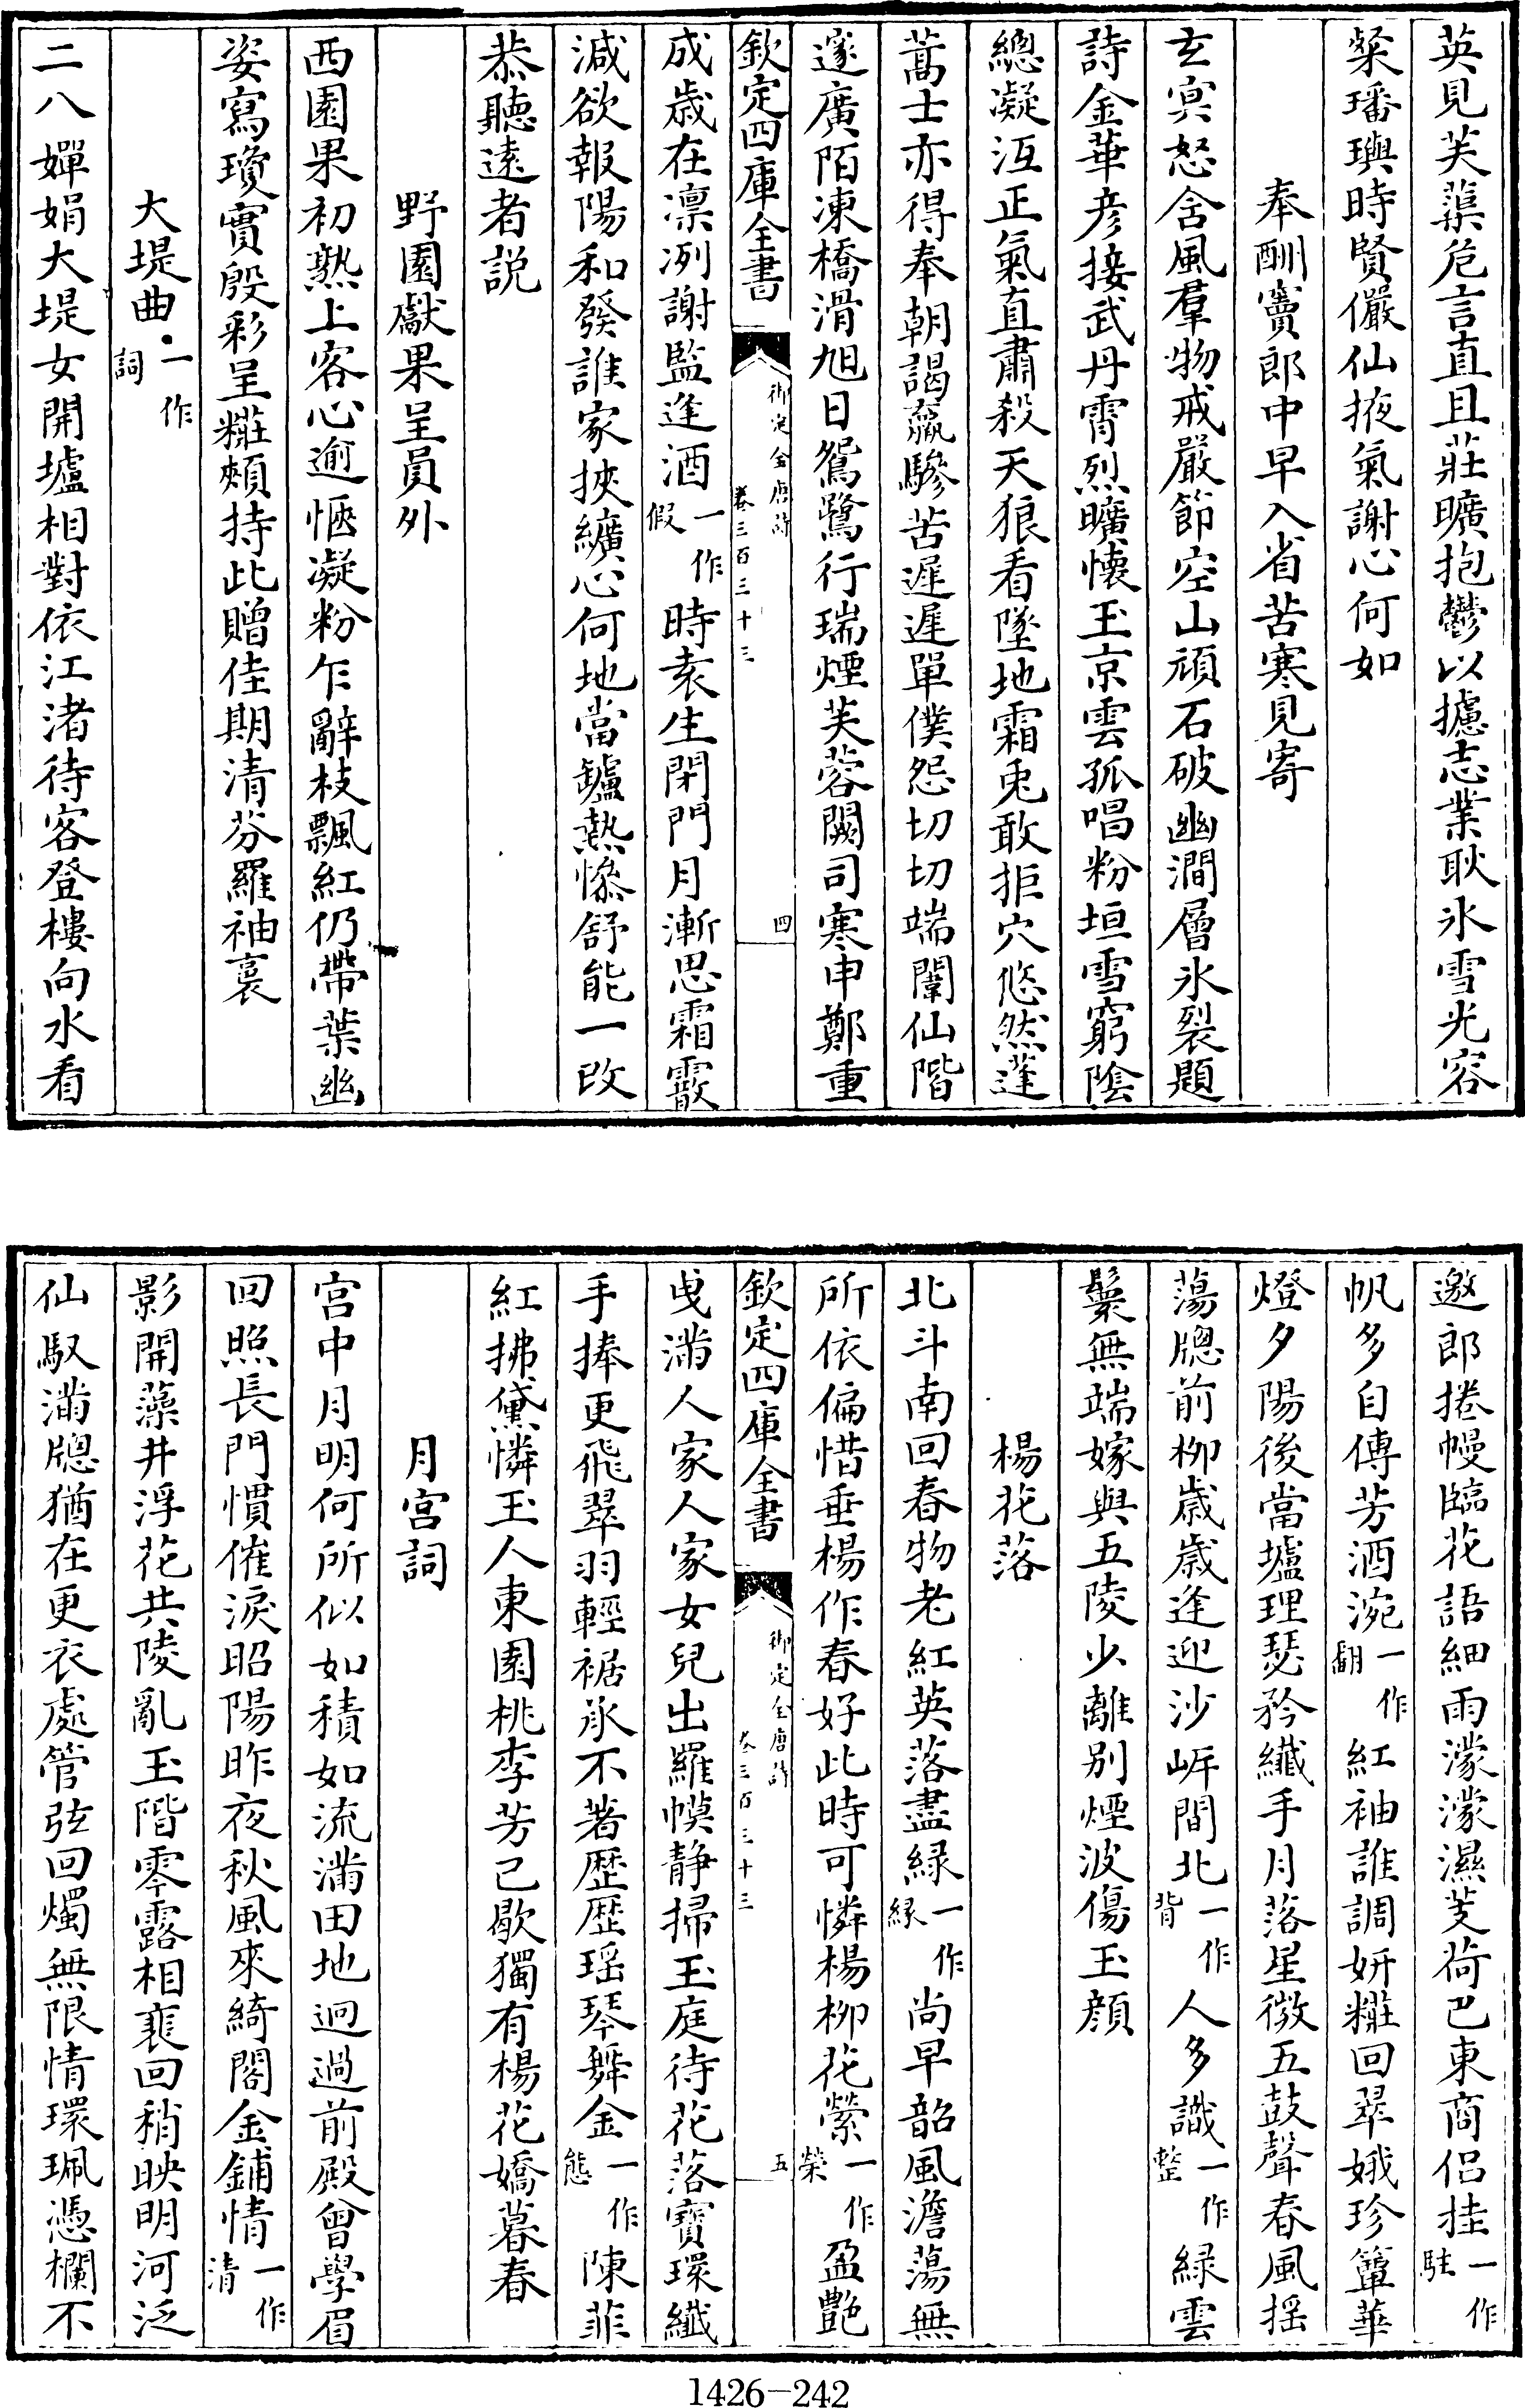 英見芙蕖危言直且莊曠抱鬱以攄志業耿氷雪光容
粲璠璵時賢儼仙掖氣謝心何如
奉酬竇郎中早入省苦寒見寄
玄㝠怒含風羣物戒嚴節空山頑石破幽澗層氷裂題
詩金華彦接武丹霄烈曠懷玉京雲孤唱粉垣雪窮陰
總凝沍正氣直肅殺天狼看墜地霜兎敢拒穴悠然蓬
蒿士亦得奉朝謁羸驂苦遲遲單僕怨切切端闈仙階
邃廣陌凍橋滑旭日鴛鷺行瑞煙芙蓉闕司寒申鄭重
欽定四庫全書 御定全唐詩 卷三百三十三 四
成歲在凛冽謝監逢酒一作假時袁生閉門月漸思霜霰
減欲報陽和發誰家挾纊心何地當鑪熱慘舒能一改
恭聽逺者説
野園獻果呈員外
西園果初熟上客心逾愜凝粉乍辭枝飄紅仍帶葉幽
姿寫瓊實殷彩呈糚頰持此贈佳期清芬羅袖裛
大堤曲一作詞
二八嬋娟大堤女開壚相對依江渚待客登樓向水看
邀郎捲幔臨花語細雨濛濛濕芰荷巴東商侣挂一作駐
帆多自傳芳酒涴一作翻紅袖誰調妍糚回翠娥珍簟華
燈夕陽後當壚理瑟矜纎手月落星微五鼓聲春風揺
蕩牕前柳歲歲逢迎沙岍間北一作背人多識一作整緑雲
鬟無端嫁與五陵少離别煙波傷玉顔
楊花落
北斗南回春物老紅英落盡緑一作緣尚早韶風澹蕩無
所依偏惜垂楊作春好此時可憐楊栁花縈一作榮盈艶
欽定四庫全書 御定全唐詩 卷三百三十三 五
曵滿人家人家女兒出羅幙静掃玉庭待花落寳環纎
手捧更飛翠羽輕裾承不著歴歴瑶琴舞金一作態陳菲
紅拂黛憐玉人東園桃李芳已歇獨有楊花嬌暮春
月宫詞
宫中月明何所似如積如流滿田地迥過前殿曾學眉
回照長門慣催淚昭陽昨夜秋風來綺閣金鋪情一作清
影開藻井浮花共陵亂玉階零露相裴回稍映明河泛
仙馭滿牕猶在更衣處管弦回燭無限情環珮憑欄不
1426—242